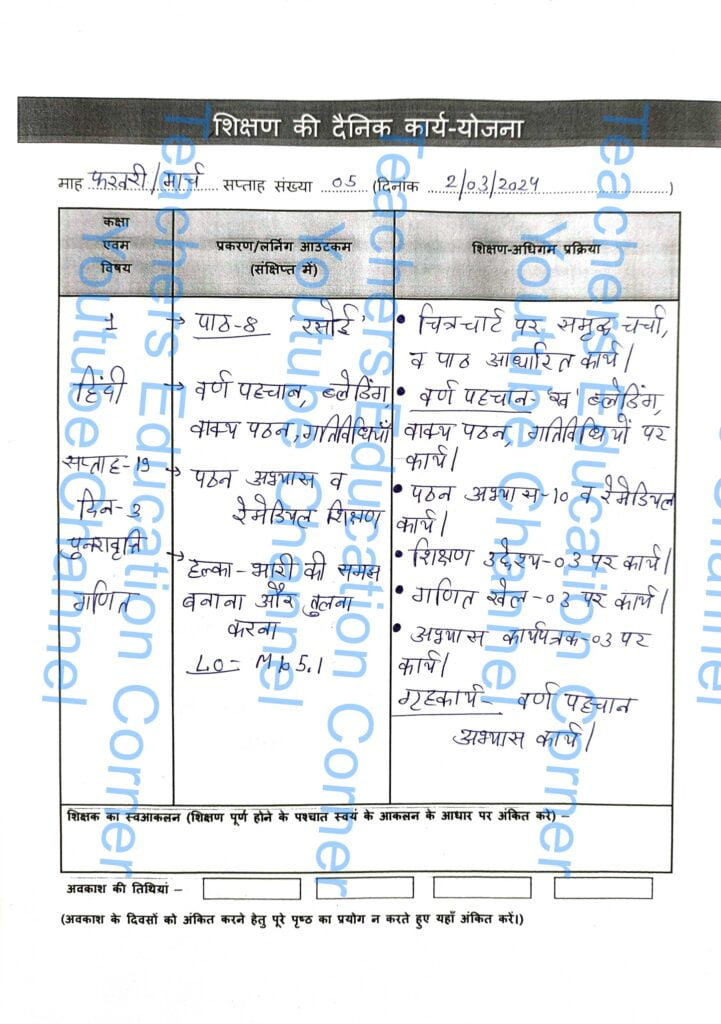 शिक्षण की दैनिक कार्य-योजना
माह फरवरी/मार्च सप्ताह संख्या 05 (दिनांक 2/03/2024)
कक्षा
एवम
विषय
प्रकरण/लर्निंग आउटकम
(संक्षिप्त में)
शिक्षण-अधिगम प्रक्रिया
1
हिंदी
सप्ताह-19
दिन-3
पुनरावृत्ति
गणित
→ पाठ-8 'रसोई'
→ वर्ण पहचान, ब्लेडिंग,
वाक्य पठन, गतिविधियाँ
→ पठन अभ्यास व
रेमेडियल शिक्षण
→ हल्का-भारी की समझ
बनाना और तुलना
करना
LO- M165.1
• चित्रचार्ट पर समृद्ध चर्चा,
व पाठ आधारित कार्य।
• वर्ण पहचान- 'ख' ब्लेडिंग,
वाक्य पठन, गतिविधियों पर
कार्य।
• पठन अभ्यास-10 व रेमेडियल
कार्य।
• शिक्षण उद्देश्य-03 पर कार्य।
• गणित खेल-03 पर कार्य।
• अभ्यास कार्यपत्रक-03 पर
कार्य।
गृहकार्य- वर्ण पहचान
अभ्यास कार्य।
शिक्षक का स्वआकलन (शिक्षण पूर्ण होने के पश्चात स्वयं के आकलन के आधार पर अंकित करे) –
अवकाश की तिथियां –
(अवकाश के दिवसों को अंकित करने हेतु पूरे पृष्ठ का प्रयोग न करते हुए यहाँ अंकित करें।)
Teachers Education Corner
Youtube Channel
Teachers Education Corner
Youtube Channel
Teachers Education Corner
Youtube Channel